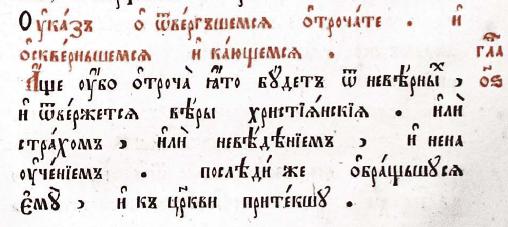 Оука́зъ ѡ҆ ѿве́ргъшемсѧ ѻ҆троча́те . и҆
ѡ҆скве́рньшемсѧ и҆ ка́ющемсѧ . гла҃
А҆́ще оу҆̀бо ѻ҆троча̀ ꙗ҆́то бꙋ́детъ ѿ невѣ́рныⷯ , ѻ҆ѕ҃
и҆ ѿве́ржетсѧ вѣ́ры христїѧ́нскїѧ . и҆лѝ
стра́хомъ , и҆лѝ невѣ́дѣнїемъ , и҆ нена
оу҆че́нїемъ . послѣди́ же ѡ҆бра́щьшꙋсѧ
є҆мꙋ̀ , и҆ къ цр҃кви прите́кшꙋ .